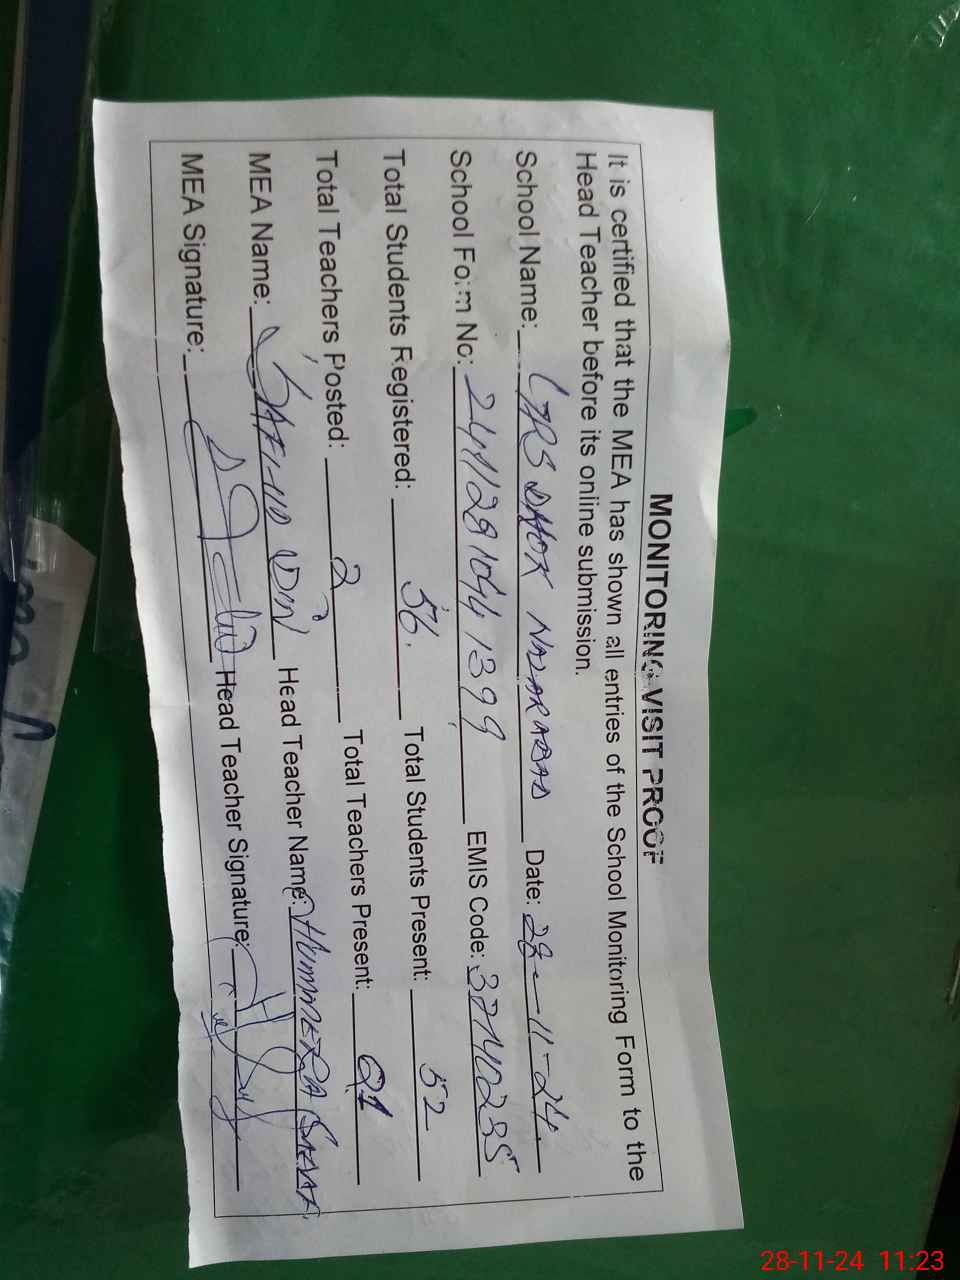 MONITORING VISIT PROOF
It is certified that the MEA has shown all entries of the School Monitoring Form to the
Head Teacher before its online submission.
School Name: DHOK NAZARABAD Date: 28-11-24.
School Form No: 24112810441399 EMIS Code: 37140285
Total Students Registered: 56 Total Students Present: 52
Total Teachers Posted: 2 Total Teachers Present: 01
MEA Name: DIN Head Teacher Name: HUMMERA
MEA Signature: Head Teacher Signature:
28-11-24 11:23